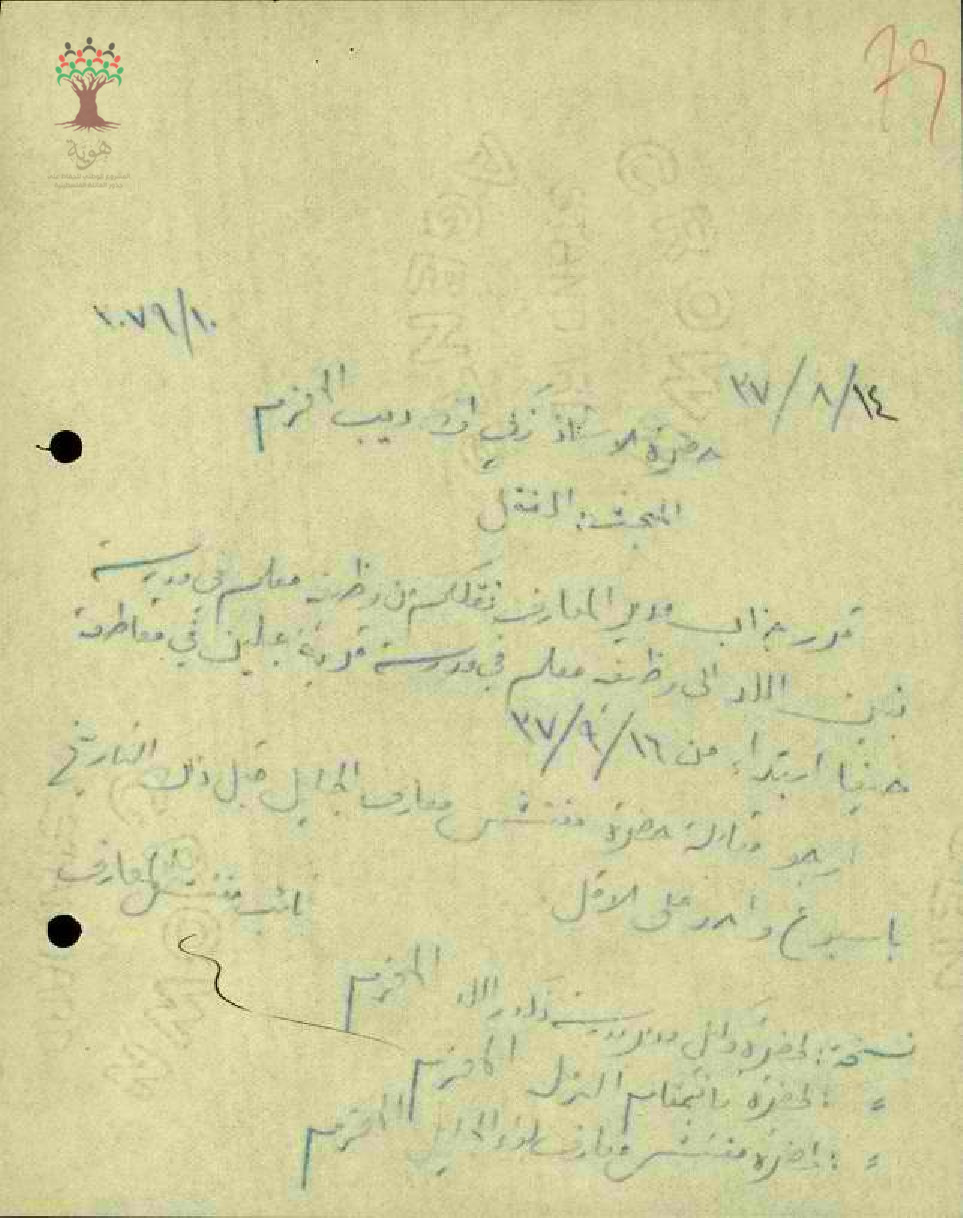 79
هوية
١٠٧٩/١٠
٣٧/٨/١٤
حضرة الاستاذ زكي ديب المحترم
المبحث: النقل
قرر جناب مدير المعارف نقلكم من وظيفة معلم في مدرسة
بنين اللد الى وظيفة معلم في مدرسة قرية في مقاطعة
حيفا ابتداء من ٣٧/٩/١٦
ارجو مقابلة حضرة مفتش معارف الجليل قبل ذلك التاريخ
باسبوع واحد على الاقل
نائب مفتش المعارف
نسخة: لحضرة مدير مدرسة اللد المحترم
= : لحضرة المحترم
= : لحضرة مفتش معارف لواء الجليل المحترم